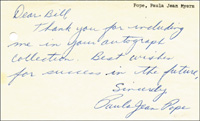 Pope, Paula Jean Myers
Dear Bill,
Thank you for including
me in your autograph
collection. Best wishes
for success in the future,
Sincerely
Paula Jean Pope